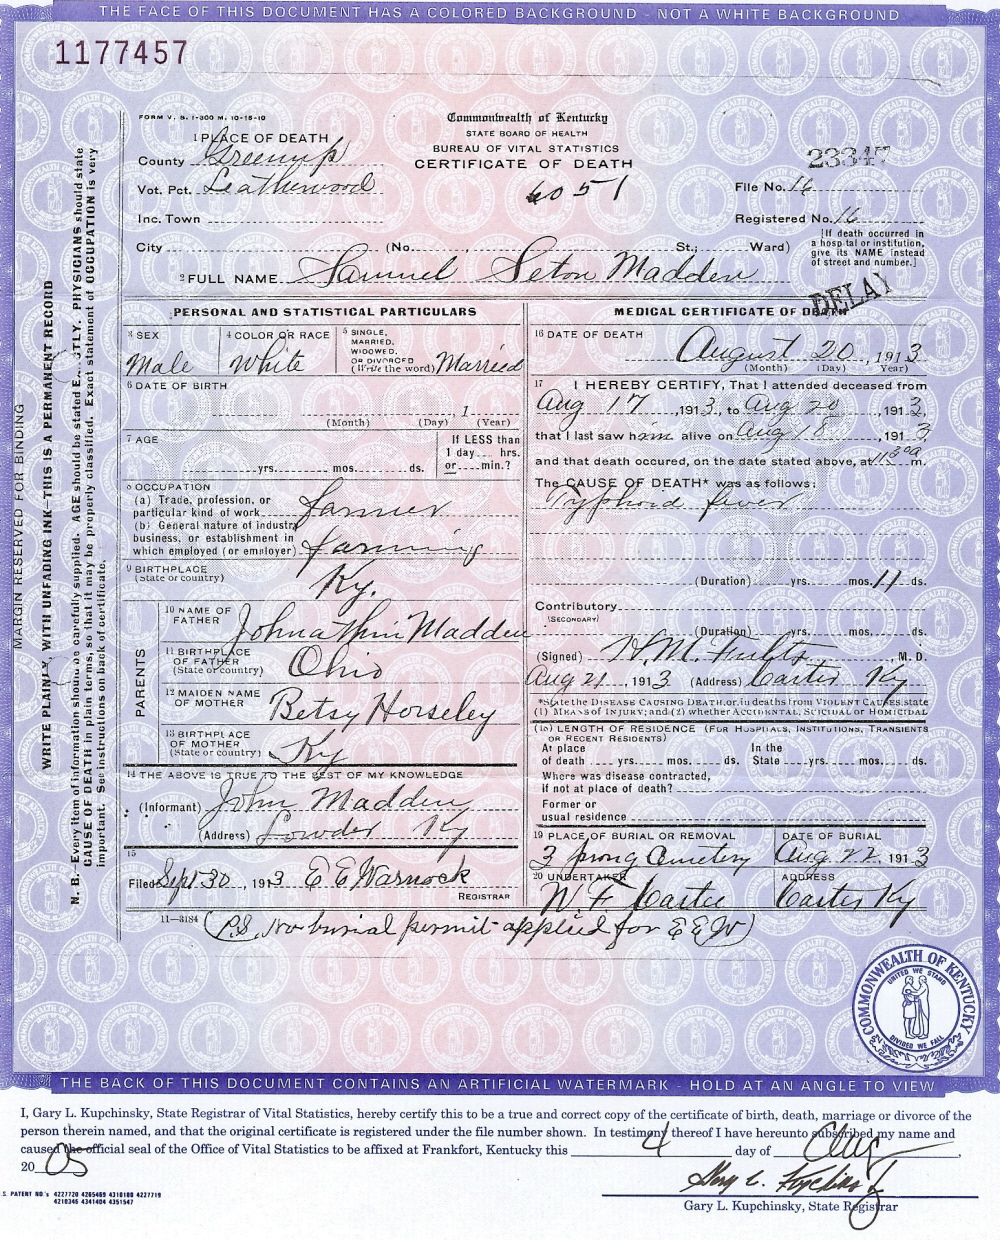 THE FACE OF THIS DOCUMENT HAS A COLORED BACKGROUND - NOT A WHITE BACKGROUND
1177457
FORM V. S. 1-300 M. 10-15-10
Commonwealth of Kentucky
STATE BOARD OF HEALTH
BUREAU OF VITAL STATISTICS
CERTIFICATE OF DEATH
1 PLACE OF DEATH
County Greenup
Vot. Pct. Leatherwood
Inc. Town
City (No. , St.; Ward)
6051
23347
File No. 16
Registered No. 16
[If death occurred in
a hospital or institution,
give its NAME instead
of street and number.]
2 FULL NAME Samuel Seton Madden
DELAY
MARGIN RESERVED FOR BINDING
WRITE PLAINLY, WITH UNFADING INK—THIS IS A PERMANENT RECORD
N. B.—Every item of information should be carefully supplied. AGE should be stated E...TLY. PHYSICIANS should state
CAUSE OF DEATH in plain terms, so that it may be properly classified. Exact statement of OCCUPATION is very
important. See instructions on back of certificate.
PERSONAL AND STATISTICAL PARTICULARS
3 SEX
Male
4 COLOR OR RACE
White
5 SINGLE,
MARRIED,
WIDOWED,
OR DIVORCED
(Write the word) Married
6 DATE OF BIRTH
, 1
(Month) (Day) (Year)
7 AGE
yrs. mos. ds.
If LESS than
1 day hrs.
or min.?
8 OCCUPATION
(a) Trade, profession, or
particular kind of work farmer
(b) General nature of industry
business, or establishment in
which employed (or employer) farming
9 BIRTHPLACE
(State or country) Ky.
PARENTS
10 NAME OF
FATHER Johnathin Madden
11 BIRTHPLACE
OF FATHER
(State or country) Ohio
12 MAIDEN NAME
OF MOTHER Betsy Horseley
13 BIRTHPLACE
OF MOTHER
(State or country) Ky
14 THE ABOVE IS TRUE TO THE BEST OF MY KNOWLEDGE
(Informant) John Madden
(Address) Lowder Ky
15
Filed Sept 30, 1913 E E Warnock
REGISTRAR
11—3184
(P.S. No burial permit applied for E E W)
MEDICAL CERTIFICATE OF DEATH
16 DATE OF DEATH
August 20, 1913
(Month) (Day) (Year)
17 I HEREBY CERTIFY, That I attended deceased from
Aug 17, 1913, to Aug 20, 1913,
that I last saw him alive on Aug 18, 1913,
and that death occured, on the date stated above, at 11 30a m.
The CAUSE OF DEATH* was as follows:
Tryphoid fever
(Duration) yrs. mos. 11 ds.
Contributory
(SECONDARY)
(Duration) yrs. mos. ds.
(Signed) H. M. Fults, M. D.
Aug 21, 1913 (Address) Carter Ky
*State the DISEASE CAUSING DEATH, or, in deaths from VIOLENT CAUSES, state
(1) MEANS OF INJURY; and (2) whether ACCIDENTAL, SUICIDAL or HOMICIDAL
(18) LENGTH OF RESIDENCE (FOR HOSPITALS, INSTITUTIONS, TRANSIENTS
OR RECENT RESIDENTS)
At place In the
of death yrs. mos. ds. State yrs. mos. ds.
Where was disease contracted,
if not at place of death?
Former or
usual residence
19 PLACE OF BURIAL OR REMOVAL
3 prong Cemetery
DATE OF BURIAL
Aug 22, 1913
20 UNDERTAKER
W. F. Carter
ADDRESS
Carter Ky
COMMONWEALTH OF KENTUCKY
UNITED WE STAND
DIVIDED WE FALL
THE BACK OF THIS DOCUMENT CONTAINS AN ARTIFICIAL WATERMARK - HOLD AT AN ANGLE TO VIEW
I, Gary L. Kupchinsky, State Registrar of Vital Statistics, hereby certify this to be a true and correct copy of the certificate of birth, death, marriage or divorce of the
person therein named, and that the original certificate is registered under the file number shown. In testimony thereof I have hereunto subscribed my name and
caused the official seal of the Office of Vital Statistics to be affixed at Frankfort, Kentucky this 4 day of Aug,
20 05
Gary L. Kupchinsky
Gary L. Kupchinsky, State Registrar
S. PATENT NO's 4227720 4265469 4310180 4227719
4210346 4341404 4351547